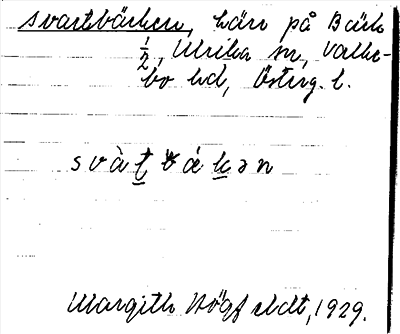 Svartbäcken, kärr på Bäck
1/2, Ulrika sn, Valke-
bo hd, Österg. l.
svàt bákən
Margith Högfeldt, 1929.